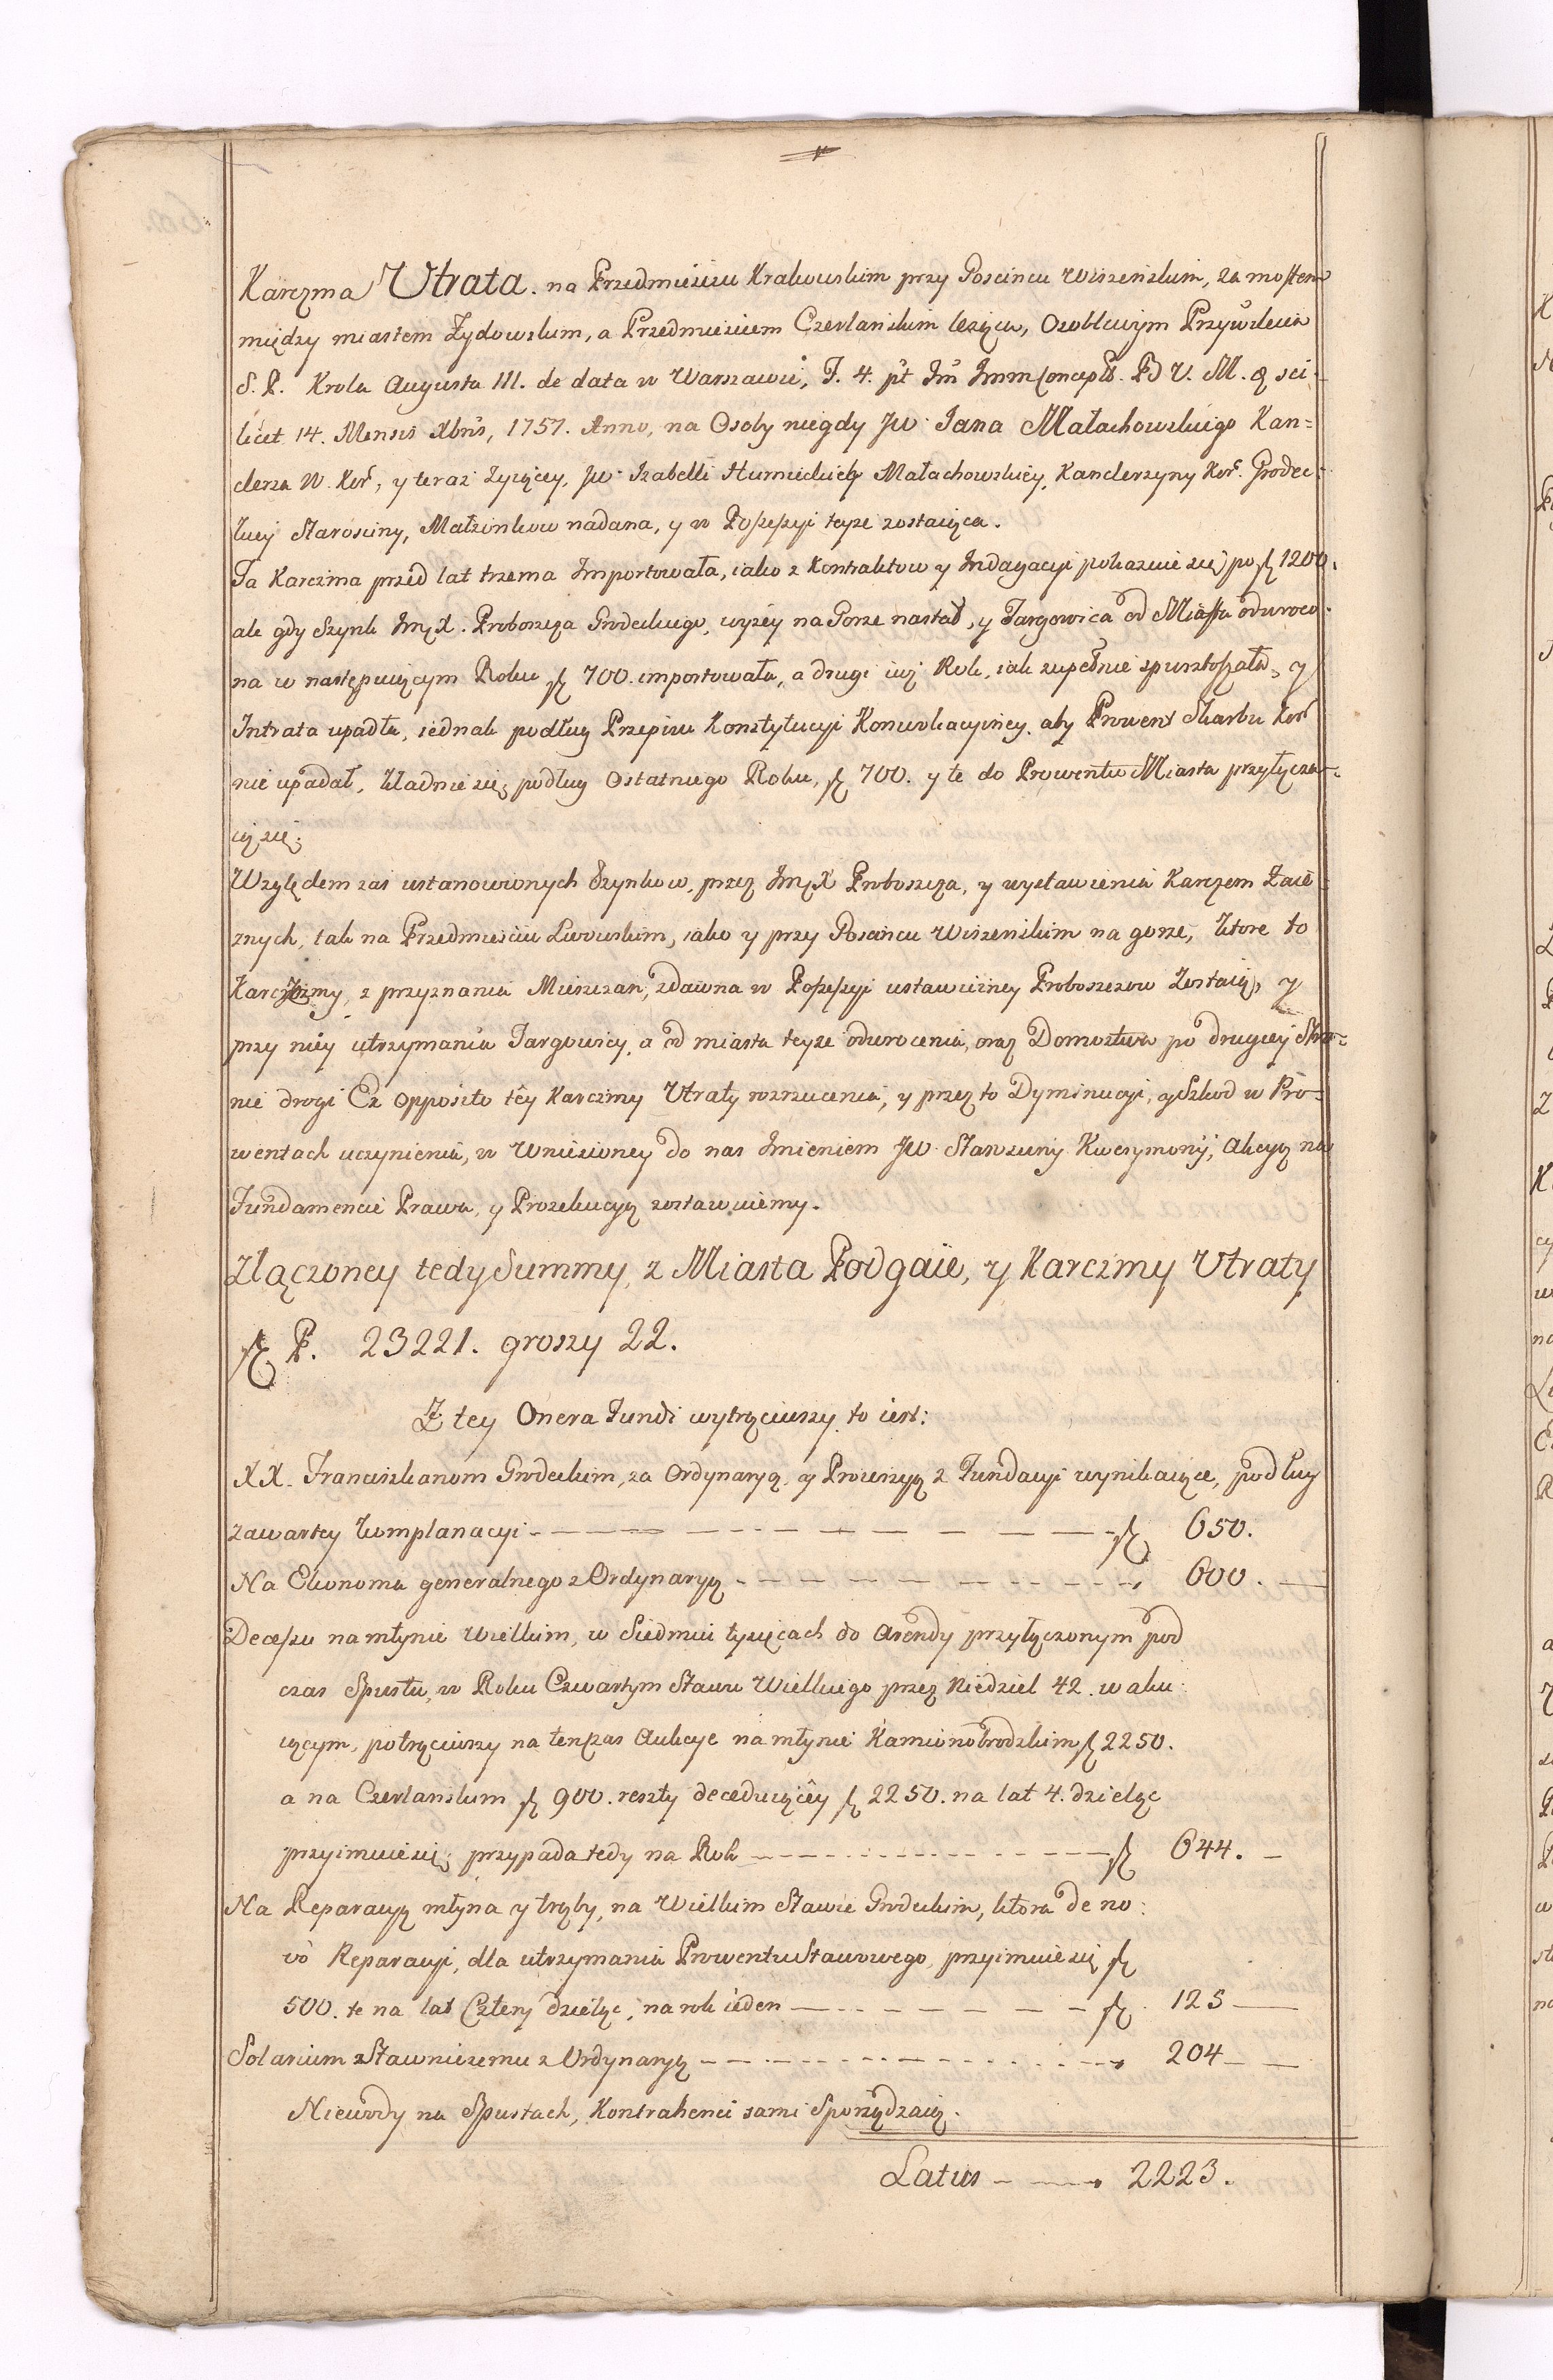 Karczma Utrata. na Przedmieściu Krakowskim przy Goscincu Wiszenskim, za mostem
między miastem Żydowskim, a Przedmieściem Czerlanskim leżąca, Osobliwym Przywileiem
S. P. Krola Augusta III. de data w Warszawie, F. 4. pt Im Imm Concept. B V. M. & sci-
licet 14. Mensis Xbris, 1757. Anno, na Osoby niegdy JW Jana Małachowskiego Kan=
clerza W. Kor, y teraz żyiącey, JW Izabelli Humieckich Małachowskiey, Kanclerzyny Kor. Grodec-
kiey Starosciny, Małżonkow nadana, y w Possessyi teyże zostaiąca.
Ta Karczma przed lat trzema Importowała, iako z Kontraktow y Indagacyi pokazuie się po zł 1200.
ale gdy Szynk ImX. Proboszcza Grodeckiego, wyżey na Gorze nastał, y Targowica od Miasta odwroco-
na w następuiącym Roku zł 700. importowała, a drugi iuż Rok, iak zupełnie spustoszała, y
Intrata upadła, iednak podług Przepisu Konstytucyi Konwokacyiney, aby Prowent Skarbu Kor
nie upadał, kładnie się podług Ostatniego Roku, zł 700. y te do Prowentu Miasta przyłącza-
ią się.
Względem zas ustanowionych Szynkow, przez ImX Proboszcza, y wystawienia Karczem Zaie-
znych, tak na Przedmieściu Lwowskim, iako y przy Goscincu Wiszenskim na gorze, ktore to
Karczmy, z przyznania Mieszczan, zdawna w Possessyi ustawiczney Proboszczow zostaią, y
przy niey utrzymania Targowicy, a od miasta teyże odwrocenia, oraz Domostwa po drugiey Stro-
nie drogi Ex opposito tey Karczmy Utraty rozrzucenia, y przez to Dyminucyi, y Szkod w Pro-
wentach uczynienia, w Wniesioney do nas Imieniem JW Starosciny Kwerymonij, Akcyą na
Fundamencie Prawa, y Prozekucyą zostawuiemy.
Złączoney tedy Summy, z Miasta Podgaie, y Karczmy Utraty
zł P. 23221. groszy 22.
Z tey Onera Fundi wytrąciwszy to iest:
XX. Franciszkanom Grodeckim, za Ordynaryą, y Prowizyą z Fundacyi wynikaiące, podług
zawartey komplanacyi - zł 650.
Na Ekonoma generalnego z Ordynaryą - 600.
Decessu na młynie Wielkim, w Siedmiu tysiącach do Arendy przyłączonym pod
czas Spustu, w Roku Czwartym Stawu Wielkiego przez Niedziel 42. waku-
iącym, potrąciwszy na tenczas Aukcye na młynie Kamionobrodzkim zł 2250.
a na Czerlanskim zł 900. reszty deceduiącey zł 2250. na lat 4. dzieląc
przyimuie się, przypada tedy na Rok - zł 644.
Na Reparacyą młyna y trąby, na Wielkim Stawie Grodeckim, ktora de no-
vo Reparacyi, dla utrzymania Prowentu Stawowego, przyimuie się zł
500. te na lat Cztery dzieląc, na rok ieden - zł 125
Solarium Stawniczemu z Ordynaryą - 204
Niewody na Spustach, Kontrahenci sami Sporządzaią.
Latus - 2223.